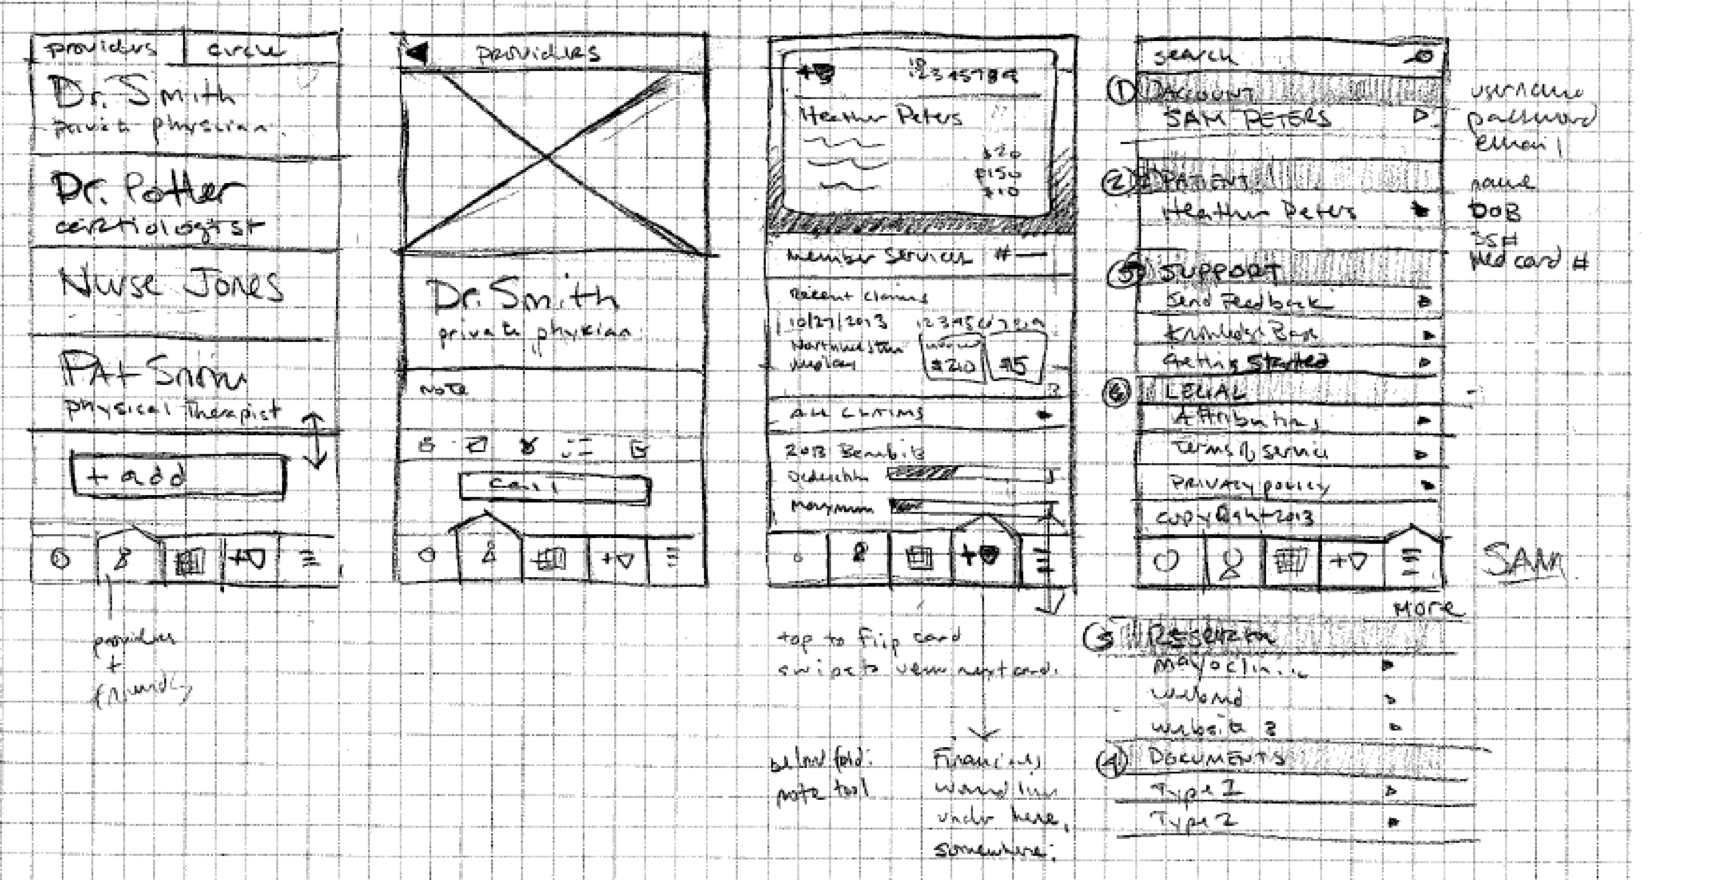 providers
circle
Dr. Smith
private physician
Dr. Potter
cartiologist
Nurse Jones
PAt Snow
physical Therapist
+ add
providers
+
friends
PROVIDERS
Dr. Smith
private physician
Note
Call
123456789
Heather Peters
$20
$150
$10
Member Services #
Recent claims
10/27/2013 123456789
Northwestern
$20 $5
ALL CLAIMS
2013 Benefits
Deductible
Maximum
tap to flip card
swipe to view next card.
below fold:
note tool
Financials
would live
under here,
somewhere.
search
1 ACCOUNT
SAM PETERS
username
password
email
2 PATIENT
Heather Peters
name
DOB
SS#
Med card #
5 SUPPORT
Send Feedback
Knowledge Base
Getting Started
6 LEGAL
Attributions
Terms of service
PRIVACY policy
copyRight 2013
SAM
MORE
3 RESEARCH
Mayoclin...
webmd
website 3
4 DOCUMENTS
Type 1
Type 2